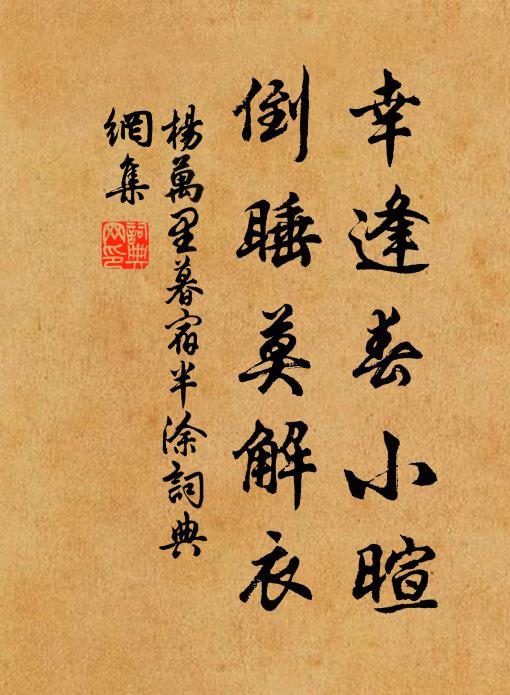 幸逢春小暄
倒睡莫解衣
楊萬里暮宿半涂詞典
網集
詞典網印